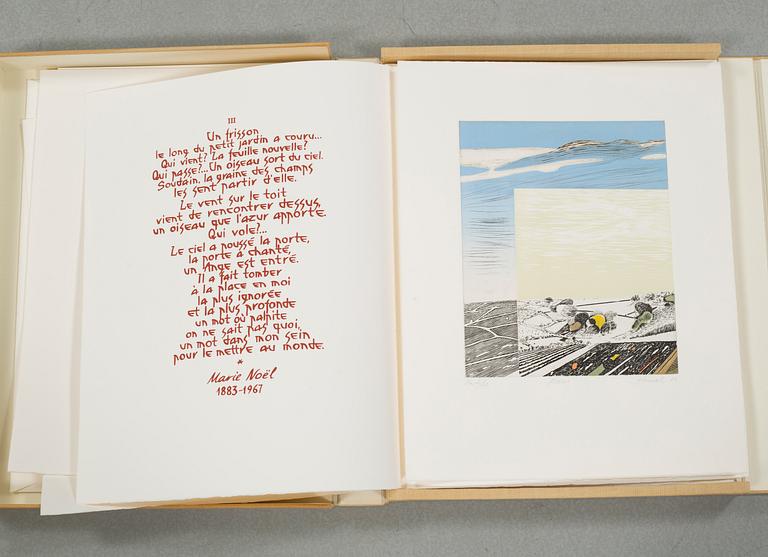 III
Un frisson
le long du petit jardin a couru...
Qui vient? La feuille nouvelle?
Qui passe?... Un oiseau sort du ciel.
Soudain, la graine des champs
les sent partir d'elle.
Le vent sur le toit
vient de rencontrer dessus,
un oiseau que l'azur apporte.
Qui vole?...
Le ciel a poussé la porte,
la porte a chanté,
un Ange est entré.
Il a fait tomber
à la place en moi
la plus ignorée
et la plus profonde
un mot où palpite
on ne sait pas quoi,
un mot dans mon sein
pour le mettre au monde.
*
Marie Noël
1883-1967